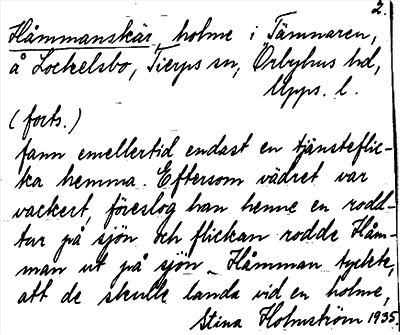 2.
Håmmanskär, holme i Tämnaren,
å Lockelsbo, Tierps sn, Örbyhus hd,
Upps. l.
(forts.)
fann emellertid endast en tjänsteflic-
ka hemma. Eftersom vädret var
vackert, föreslog han henne en rodd-
tur på sjön och flickan rodde Håm-
man ut på sjön. Håmman tyckte,
att de skulle landa vid en holme,
Stina Holmström 1935